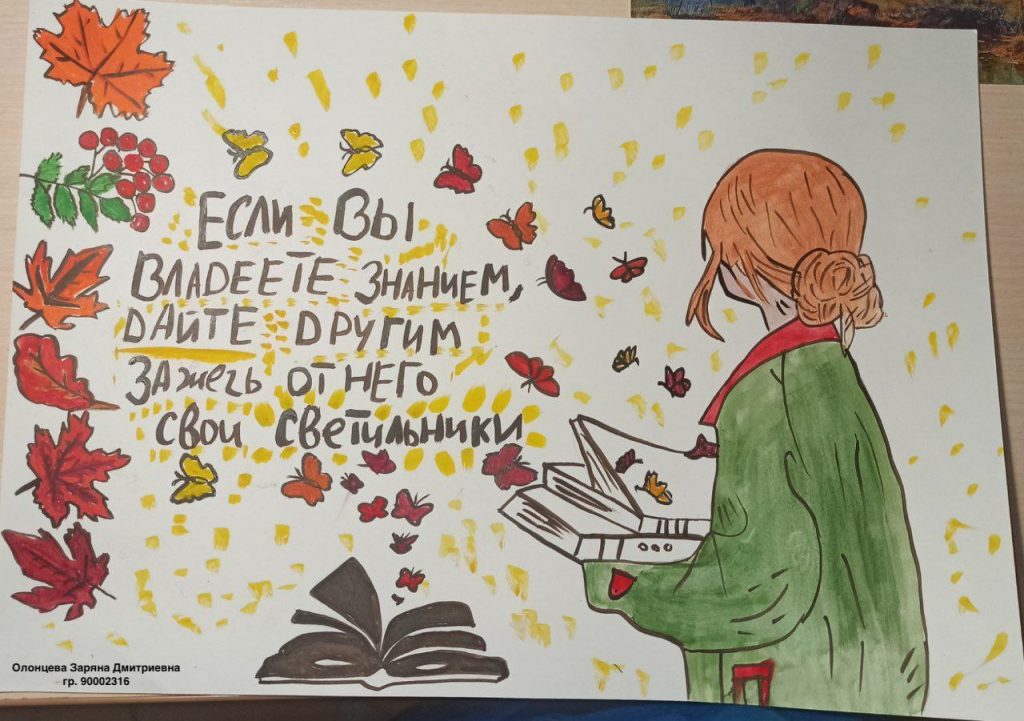 Если Вы
Владеете знанием,
Дайте другим
зажечь от него
свои светильники
Олонцева Заряна Дмитриевна
гр. 90002316